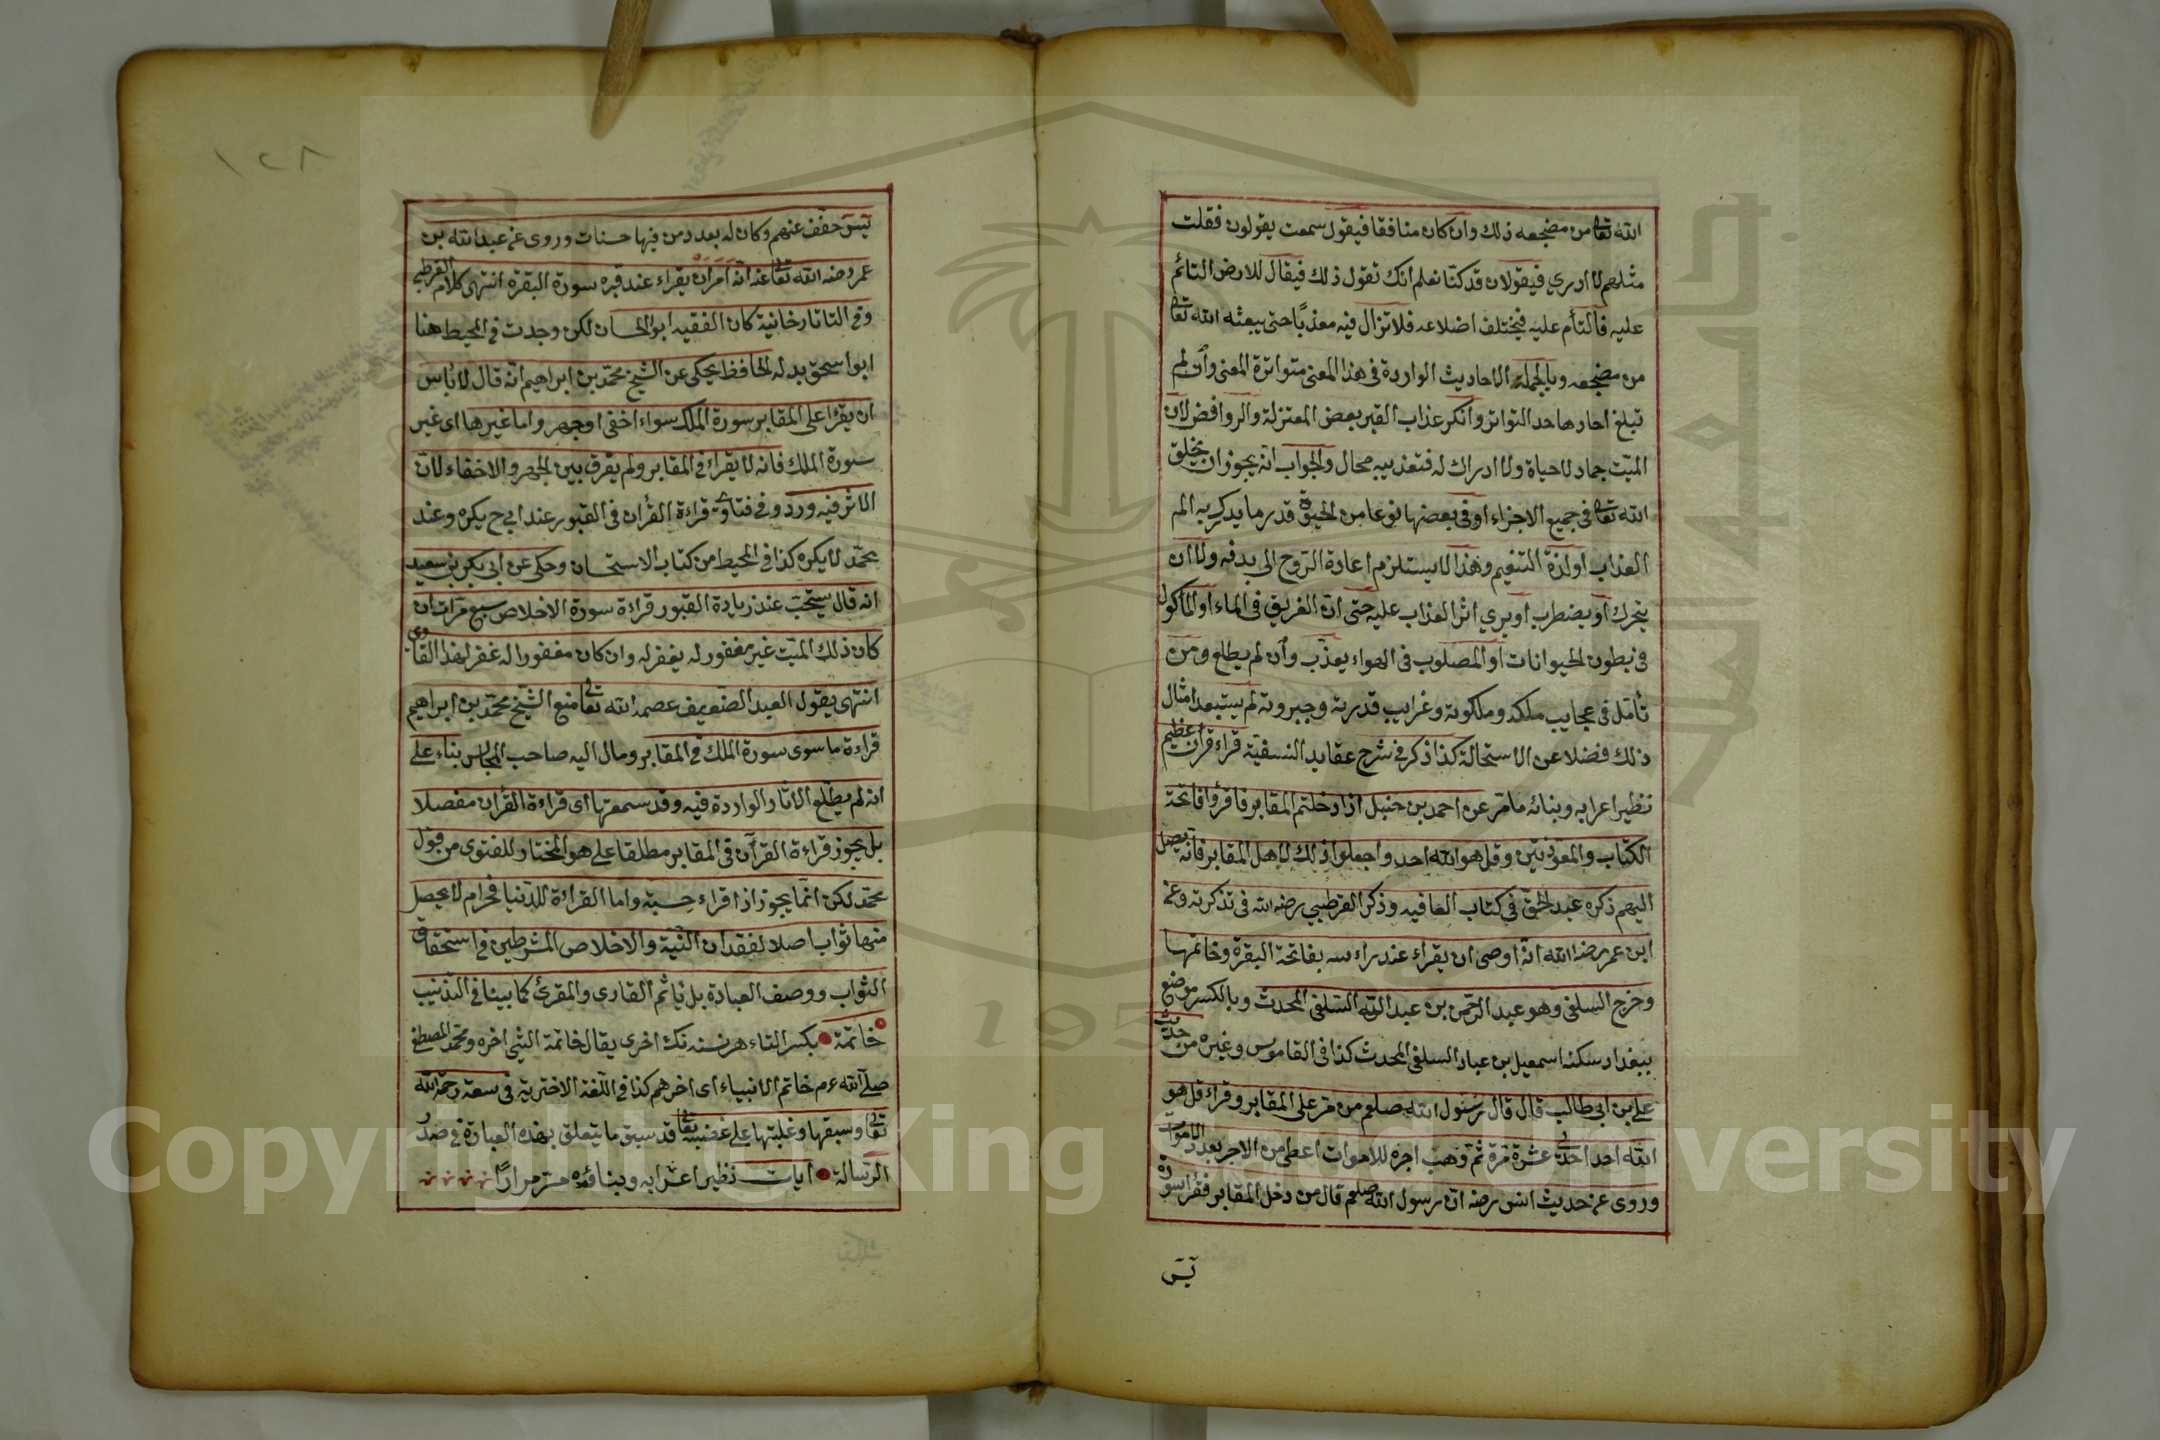 الله تعالى من مضجعه ذلك وان كان منافقا فيقول سمعت يقولون فقلت
مثلهم لا ادري فيقولان قد كنا نعلم انك تقول ذلك فيقال للارض التائم
عليه فالتأم عليه فيختلف اضلاعه فلا تزال فيه معذبًا حتى يبعثه الله تعالى
من مضجعه وبالجملة الاحاديث الواردة في هذا المعنى متواترة المعنى وان لم
تبلغ احادها حد التواتر وانكر عذاب القبر بعض المعتزلة والروافض لان
الميت جماد لا حياة ولا ادراك له فتعذيبه محال والجواب انه يجوز ان يخلق
الله تعالى في جميع الاجزاء او في بعضها نوعا من الحيوة قدر ما يدرك به الم
العذاب او لذة التنعيم وهذا لا يستلزم اعادة الروح الى بدنه ولا ان
يتحرك او يضطرب او يري اثر العذاب عليه حتى ان الغريق في الماء او الماكول
في بطون الحيوانات او المصلوب في الهواء يعذب وان لم يطلع ومن
تأمل في عجايب ملكه وملكوته وغرايب قدرته وجبروته لم يستبعد امثال
ذلك فضلا عن الاستحالة كذا ذكر في شرح عقايد النسفية قراء قرآن عظيم
نظير اعرابه وبنائه ما مر عن احمد بن حنبل اذا دخلتم المقابر فاقرؤا فاتحة
الكتاب والمعوذتين وقل هو الله احد واجعلوا ذلك لاهل المقابر فانه يصل
اليهم ذكره عبد الحق في كتاب العافيه وذكر القرطبي رضه الله في تذكرته وعن
ابن عمر رضه الله انه اوصى ان يقراء عند راءسه بفاتحة البقرة وخاتمتها
وخرج السلفي وهو عبد الرحمن بن عبد الله السلفي المحدث وبالكسر موضع
ببغداد سكنه اسمعيل بن عباد السلفي المحدث كذا في القاموس وغيره من حديث
علي بن ابي طالب قال قال رسول الله صلعم من مر على المقابر وقراء قل هو
الله احد احدى عشرة مرة ثم وهب اجره للاموات اعطى من الاجر بعدد الاموات
وروى عن حديث انس رضه ان رسول الله صلعم قال من دخل المقابر فقراء سورة
يس
١٢٨
يس خفف عنهم وكان له بعدد من فيها حسنات وروى عن عبد الله بن
عمر رضه الله تعالى عنه انه امر ان يقراء عند قبره سورة البقرة انتهى كلام القرطبي
وفي التاتارخانية كان الفقيه ابو الحسان لكن وجدت في المحيط هنا
ابو اسحق بدله الحافظ يحكى عن الشيخ محمد بن ابراهيم انه قال لا باس
ان يقرا على المقابر سورة الملك سواء اخفى او جهر واما غيرها اى غير
سورة الملك فانه لا يقراء في المقابر ولم يفرق بين الجهر والاخفاء لان
الاثر فيه ورد وفي فتاوى قراءة القرأن في القبور عند ابي ح يكره وعند
محمد لا يكره كذا في المحيط من كتاب الاستحسان وحكى عن ابي بكر بن سعيد
انه قال يستحب عند زيادة القبور قراءة سورة الاخلاص سبع مرات ان
كان ذلك الميت غير مغفور له يغفر له وان كان مغفورا له غفر لهذا القاري
انتهى يقول العبد الضعيف عصمه الله تعالى منع الشيخ محمد بن ابراهيم
قراءة ما سوى سورة الملك في المقابر ومال اليه صاحب المجالس بناء على
انه لم يطلع الاثار الواردة فيه وقد سمعتها اى قراءة القرأن مفصلا
بل يجوز قراءة القرآن في المقابر مطلقا على هو المختار للفتوى من قول
محمد لكن انما يجوز اذا قراء حسبة واما القراءة للدنيا فحرام لا يحصل
منها ثواب اصلا لفقدان النية والاخلاص المشرطين في استحقاق
الثواب ووصف العبادة بل يأثم القاري والمقرئ كما بينا في التذنيب
خاتمة بكسر التاء هر نسنه نك اخرى يقال خاتمة الشي اخره ومحمد المصطفى
صلى الله عم خاتم الانبياء اى اخرهم كذا في اللغة الاخترية في سعة رحمة الله
تعالى وسبقها وغلبتها على غضبه تعالى قد سبق ما يتعلق بهذه العبارة في صدر
الرسالة ايات نظير اعرابه وبنائه مر مرارًا
Copyright © King Saud University
1957